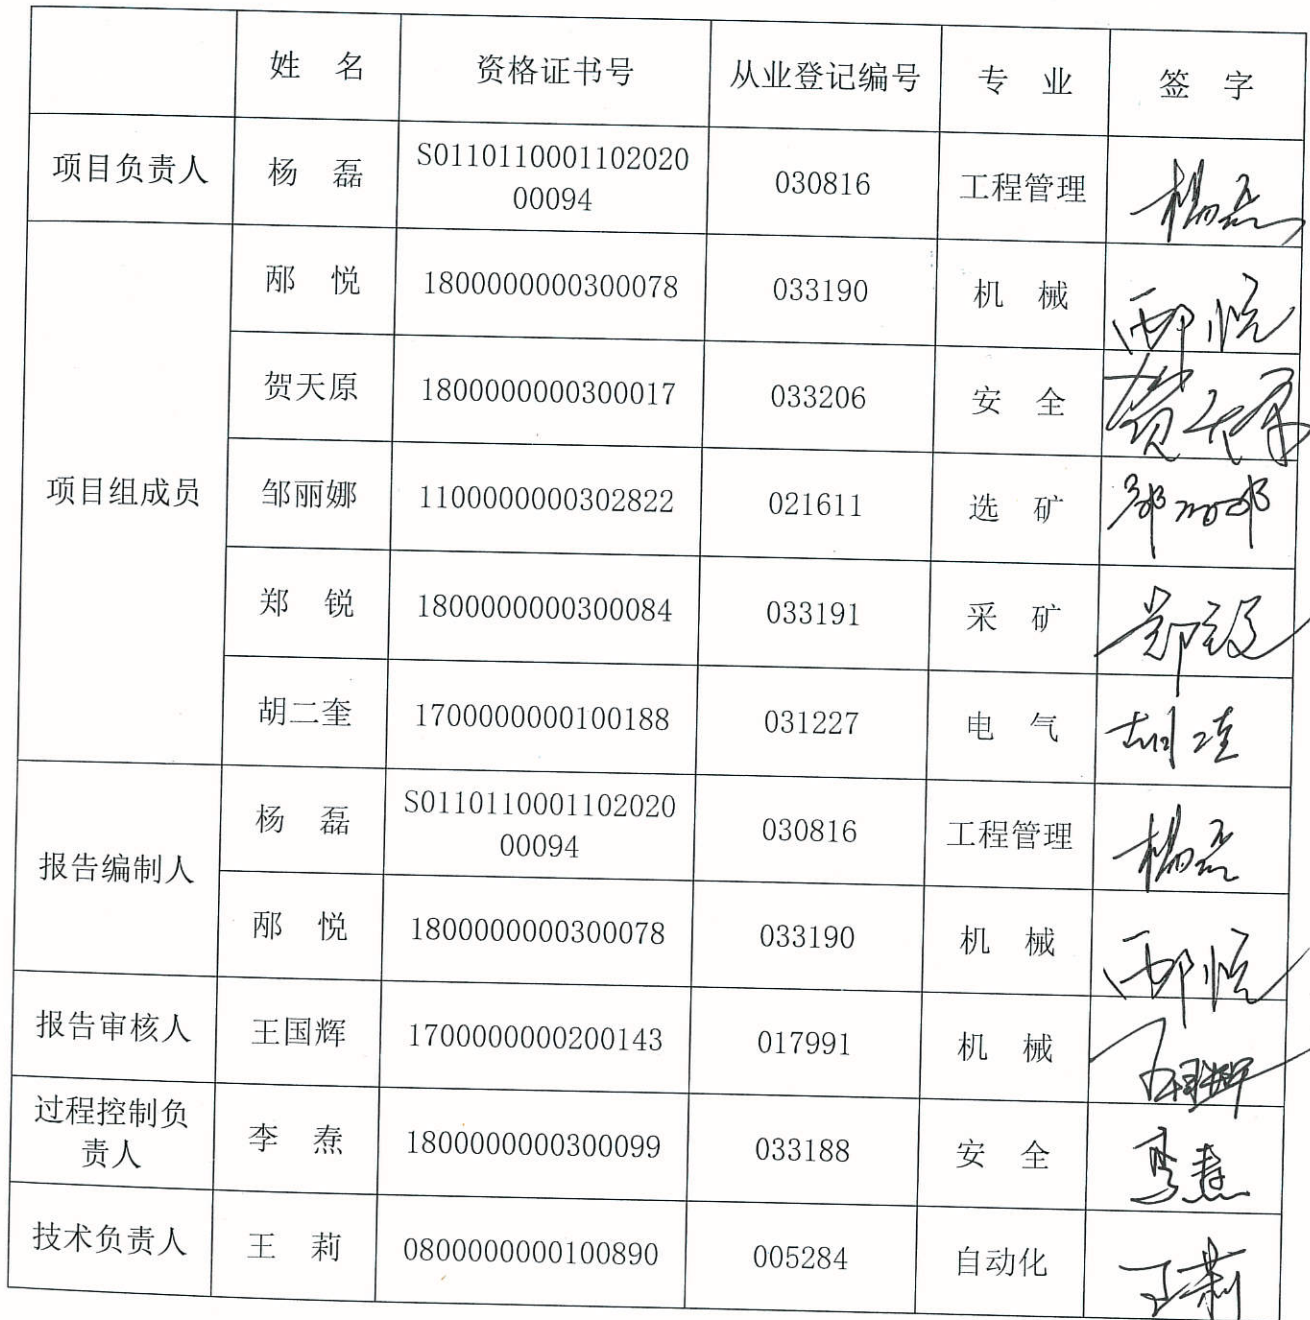 姓 名 资格证书号 从业登记编号 专 业 签 字
项目负责人 杨 磊 S0110110001102020 030816 工程管理 杨磊
00094
邴 悦 1800000000300078 033190 机 械 邴悦
贺天原 1800000000300017 033206 安 全 贺天原
项目组成员 邹丽娜 1100000000302822 021611 选 矿 邹丽娜
郑 锐 1800000000300084 033191 采 矿 郑锐
胡二奎 1700000000100188 031227 电 气 胡二奎
报告编制人 杨 磊 S0110110001102020 030816 工程管理 杨磊
00094
邴 悦 1800000000300078 033190 机 械 邴悦
报告审核人 王国辉 1700000000200143 017991 机 械 王国辉
过程控制负 李 焘 1800000000300099 033188 安 全 李焘
责人
技术负责人 王 莉 0800000000100890 005284 自动化 王莉